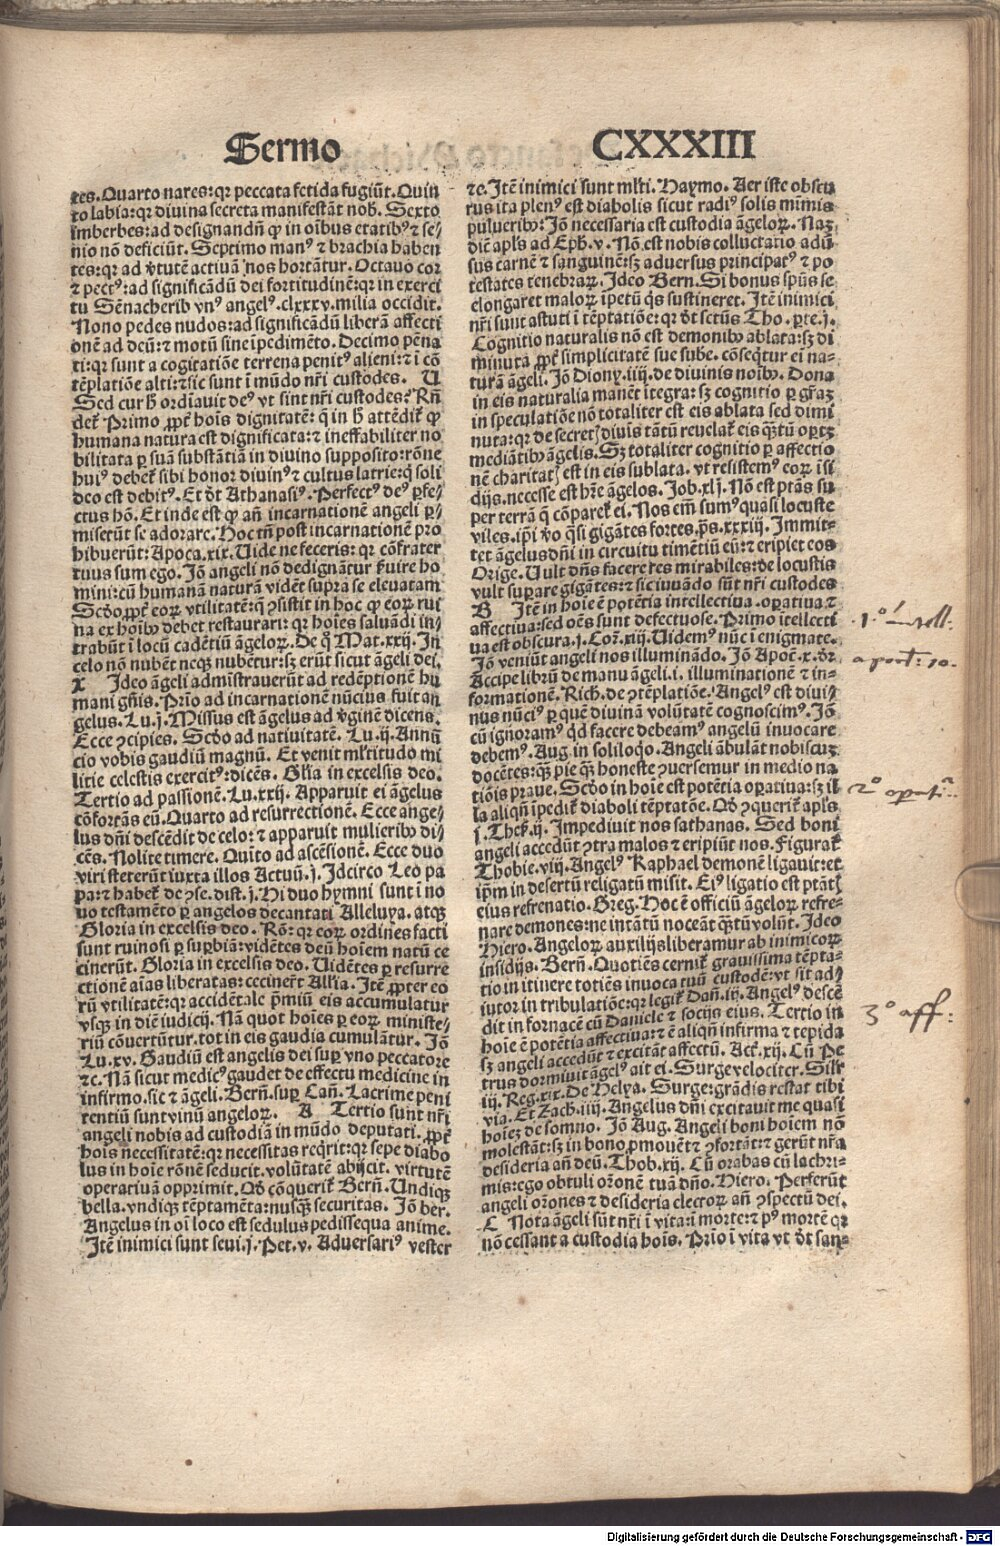 Sermo
CXXXIII
tes. Quarto nares: qꝛ peccata fetida fugiūt. Quin
to labia: qꝛ diuina secreta manifestāt nob̄. Sexto
imberbes: ad designandū ꝙ in oībus etatibꝰ ⁊ se⸗
nio nō deficiūt. Septimo manꝰ ⁊ brachia haben
tes: qꝛ ad v̓tutē actiuā nos hortātur. Octauo cor
⁊ pectꝰ: ad significādū dei fortitudinē: qꝛ in exerci
tu Sēnacherib vnꝰ angelꝰ .clxxxv. milia occidit.
Nono pedes nudos: ad significādū liberā affecti
onē ad deū: ⁊ motū sine ipedimēto. Decimo pēna
ti: qꝛ sunt a cogitatiōe terrena penitꝰ alieni: ⁊ ī cō
tēplatiōe alti: ⁊ sic sunt ī mūdo nr̄i custodes. V
Sed cur h̄ ordīauit deꝰ vt sint nr̄i custodes? Rn̄
det᷑. Primo ꝓpt̄ hoīs dignitatē: q̄ in h̄ attēdit᷑ ꝙ
humana natura est dignificata: ⁊ ineffabiliter no
bilitata ꝑ suā substātiā in diuino supposito: rōne
huiꝰ debet᷑ sibi honor diuinꝰ ⁊ cultus latrie: q̄ soli
deo est debitꝰ. Et dt̄ Athanasiꝰ. Perfectꝰ deꝰ ꝑfe⸗
ctus hō. Et inde est ꝙ an̄ incarnationē angeli ꝑ⸗
miserūt se adorare. Hoc tn̄ post incarnationē pro
hibuerūt: Apoca.xix. Uide ne feceris: qꝛ cōfrater
tuus sum ego. Jō angeli nō dedignātur s̓uire ho
mini: cū humanā naturā vidēt supra se eleuatam
Scd̄o ꝓpt̄ eoꝝ vtilitatē: q̄ ꝯsistit in hoc ꝙ eoꝝ rui
na ex hoībꝰ debet restaurari: qꝛ hoīes saluādi in⸗
trabūt ī locū cadētiū āgeloꝝ. De q̊ Mat.xxij. In
celo nō nubēt neqꝫ nubētur: sꝫ erūt sicut āgeli dei.
X Ideo āgeli admīstrauerūt ad redēptionē hu
mani gn̄is. Prīo ad incarnationē nūcius fuit an
gelus. Lu.j. Missus est āgelus ad v̓ginē dicens.
Ecce ꝯcipies. Scd̄o ad natiuitatē. Lu.ij. Annū
cio vobis gaudiū magnū. Et venit ml̄titudo mi
litie celestis exercitꝰ: dicēs. Gl̄ia in excelsis deo.
Tertio ad passionē. Lu.xxij. Apparuit ei āgelus
cōfortās eū. Quarto ad resurrectionē. Ecce ange⸗
lus dn̄i descēdit de celo: ⁊ apparuit mulieribꝰ di⸗
cēs. Nolite timere. Quīto ad ascēsionē. Ecce duo
viri steterūt iuxta illos Actuū.j. Idcirco Leo pa
pa: ⁊ habet᷑ de ꝯse. dist.j. Hi duo hymni sunt ī no
uo testamēto ꝑ angelos decantati Alleluya. atqꝫ
Gloria in excelsis deo. Rō: qꝛ eoꝝ ordines facti
sunt ruinosi ꝑ suꝑbiā: vidētes deū hoīem natū ce
cinerūt. Gloria in excelsis deo. Uidētes ꝑ resurre
ctionē aīas liberatas: ceciner̄t All̄ia. Itē ꝓpter eo
rū vtilitatē: qꝛ accidētale p̄miū eis accumulatur
vsqꝫ in diē iudicij. Nā quot hoīes ꝑ eoꝝ ministe⸗
riū cōuertūtur. tot in eis gaudia cumulātur. Jō
Lu.xv. Gaudiū est angelis dei suꝑ vno peccatore
⁊c. Nā sicut medicꝰ gaudet de effectu medicine in
infirmo. sic ⁊ āgeli. Bern̄. suꝑ Can̄. Lacrime peni
tentiū sunt vinū angeloꝝ. A Tertio sunt nr̄i
angeli nobis ad custodiā in mūdo deputati. ꝓpt̄
hoīs necessitatē: qꝛ necessitas req̄rit: qꝛ sepe diabo
lus in hoīe rōnē seducit. volūtatē abijcit. virtutē
operatiuā opprimit. Qd̄ cōquerit᷑ Bern̄. Undiqꝫ
bella. vndiqꝫ tēptamēta: nusqꝫ̄ securitas. Jō ber.
Angelus in oī loco est sedulus pedissequa anime.
Itē inimici sunt seui. j. Pet. v. Aduersariꝰ vester
⁊c. Itē inimici sunt ml̄ti. Haymo. Aer iste obscu
rus ita plenꝰ est diabolis sicut radiꝰ solis mimis
pulueribꝰ: Jō necessaria est custodia āgeloꝝ. Naꝫ
diē apl̄s ad Eph̄. v. Nō est nobis colluctatio adū
sus carnē ⁊ sanguinē: sꝫ aduersus principatꝰ ⁊ po
testates tenebraꝝ. Ideo Bern. Si bonus spūs se
elongaret maloꝝ īpetū q̄s sustineret. Itē inimici
nr̄i sunt astuti ī tēptatiōe: qꝛ dt̄ sctūs Tho. ꝑte.j.
Cognitio naturalis nō est demonibꝰ ablata: sꝫ di
minuta ꝓpt̄ simplicitatē sue sube. cōseq̄tur ei na⸗
turā āgeli. Jō Diony. iiij. de diuinis noībꝰ. Dona
in eis naturalia manēt ītegra: sꝫ cognitio ꝑ gr̄aꝫ
in speculatiōe nō totaliter est eis ablata sed dimi
nuta: qꝛ de secret̄ diuīs tātū reuelat᷑ eis qꝫ̄tū oportꝫ
mediātibꝰ āgelis. Sꝫ totaliter cognitio ꝑ affectio
nē charitat̄ est in eis sublata. vt resistemꝰ eoꝝ īsi
dijs. necesse est hr̄e āgelos. Job. xlj. Nō est ptās su
per terrā q̄ cōparet᷑ ei. Nos em̄ sumꝰ quasi locuste
viles. ip̄i v̓o q̄si gigātes fortes. ps. xxxiij. Immit⸗
tet āgelus dn̄i in circuitu timētiū eū: ⁊ eripiet eos
Orige. Uult dn̄s facere res mirabiles: de locustis
vult suꝑare gigātes: ⁊ sic iuuādo sūt nr̄i custodes
B Itē in hoīe ē potētia intellectiua. oꝑatiua ⁊
affectiua: sed oēs sunt defectuose. Primo itellecti
ua est obscura. j. Cor̄. xiij. Uidemꝰ nūc ī enigmate.
Jō veniūt angeli nos illuminādo. Jō Apoc̄. x. dr̄
Accipe librū de manu āgeli. i. illuminationē ⁊ in⸗
formationē. Rich. de ꝯtēplatiōe. Angelꝰ est diui⸗
nus nūciꝰ ꝑ quē diuinā volūtatē cognoscimꝰ. Jō
cū ignoramꝰ qd̄ facere debeamꝰ angelū inuocare
debemꝰ. Aug. in soliloqo. Angeli ābulāt nobiscuꝫ
docētes: qꝫ̄ pie qꝫ̄ honeste ꝯuersemur in medio na
tiōis praue. Scd̄o in hoīe est potētia oꝑatiua: sꝫ il
la aliqn̄ īpedit᷑ diaboli tēptatōe. Qd̄ ꝯquerit᷑ apl̄s
j. Thes̄. ij. Impediuit nos sathanas. Sed boni
angeli accedūt ꝯtra malos ⁊ eripiūt nos. Figurat᷑
Thobie. viij. Angelꝰ Raphael demonē ligauit: et
ip̄m in desertū religatū misit. Eiꝰ ligatio est ptāt̄
eius refrenatio. Greg. Hoc ē officiū āgeloꝝ refre⸗
nare demones: ne intātū noceāt qꝫ̄tū volūt. Ideo
Hiero. Angeloꝝ auxilijs liberamur ab inimicoꝝ
insidijs. Bern̄. Quotiēs cernit᷑ grauissima tēpta⸗
tio in itinere totiēs inuoca tuū custodē: vt sit ad⸗
iutor in tribulatiōe: qꝛ legit᷑ Dan̄. iij. Angelꝰ descē
dit in fornacē cū Daniele ⁊ socijs eius. Tertio in
hoīe ē potētia affectiua: ⁊ ē aliqn̄ infirma ⁊ tepida
sꝫ angeli accedūt ⁊ excitāt affectū. Act̄. xij. Cū Pe
trus dormiuit āgelꝰ ait ei. Surge velociter. Silr̄
iij. Reg. xix. De Helya. Surge: grādis restat tibi
via. Et Zach. iiij. Angelus dn̄i excitauit me quasi
hoīeꝫ de somno. Jō Aug. Angeli boni hoīem nō
molestāt: sꝫ in bono ꝓmouēt ⁊ ꝯfortāt: ⁊ gerūt nr̄a
desideria an̄ deū. Thob. xij. Cū orabas cū lachri⸗
mis: ego obtuli or̄onē tuā dn̄o. Hiero. Perferūt
angeli or̄ones ⁊ desideria electoꝝ an̄ ꝯspectū dei.
C Nota āgeli sūt nr̄i ī vita: ī morte: ⁊ pꝰ mortē qꝛ
nō cessant a custodia hoīs. Prīo ī vita vt dt̄ san⸗
1.º intell:
2º operati..
3º aff:
Digitalisierung gefördert durch die Deutsche Forschungsgemeinschaft - DFG